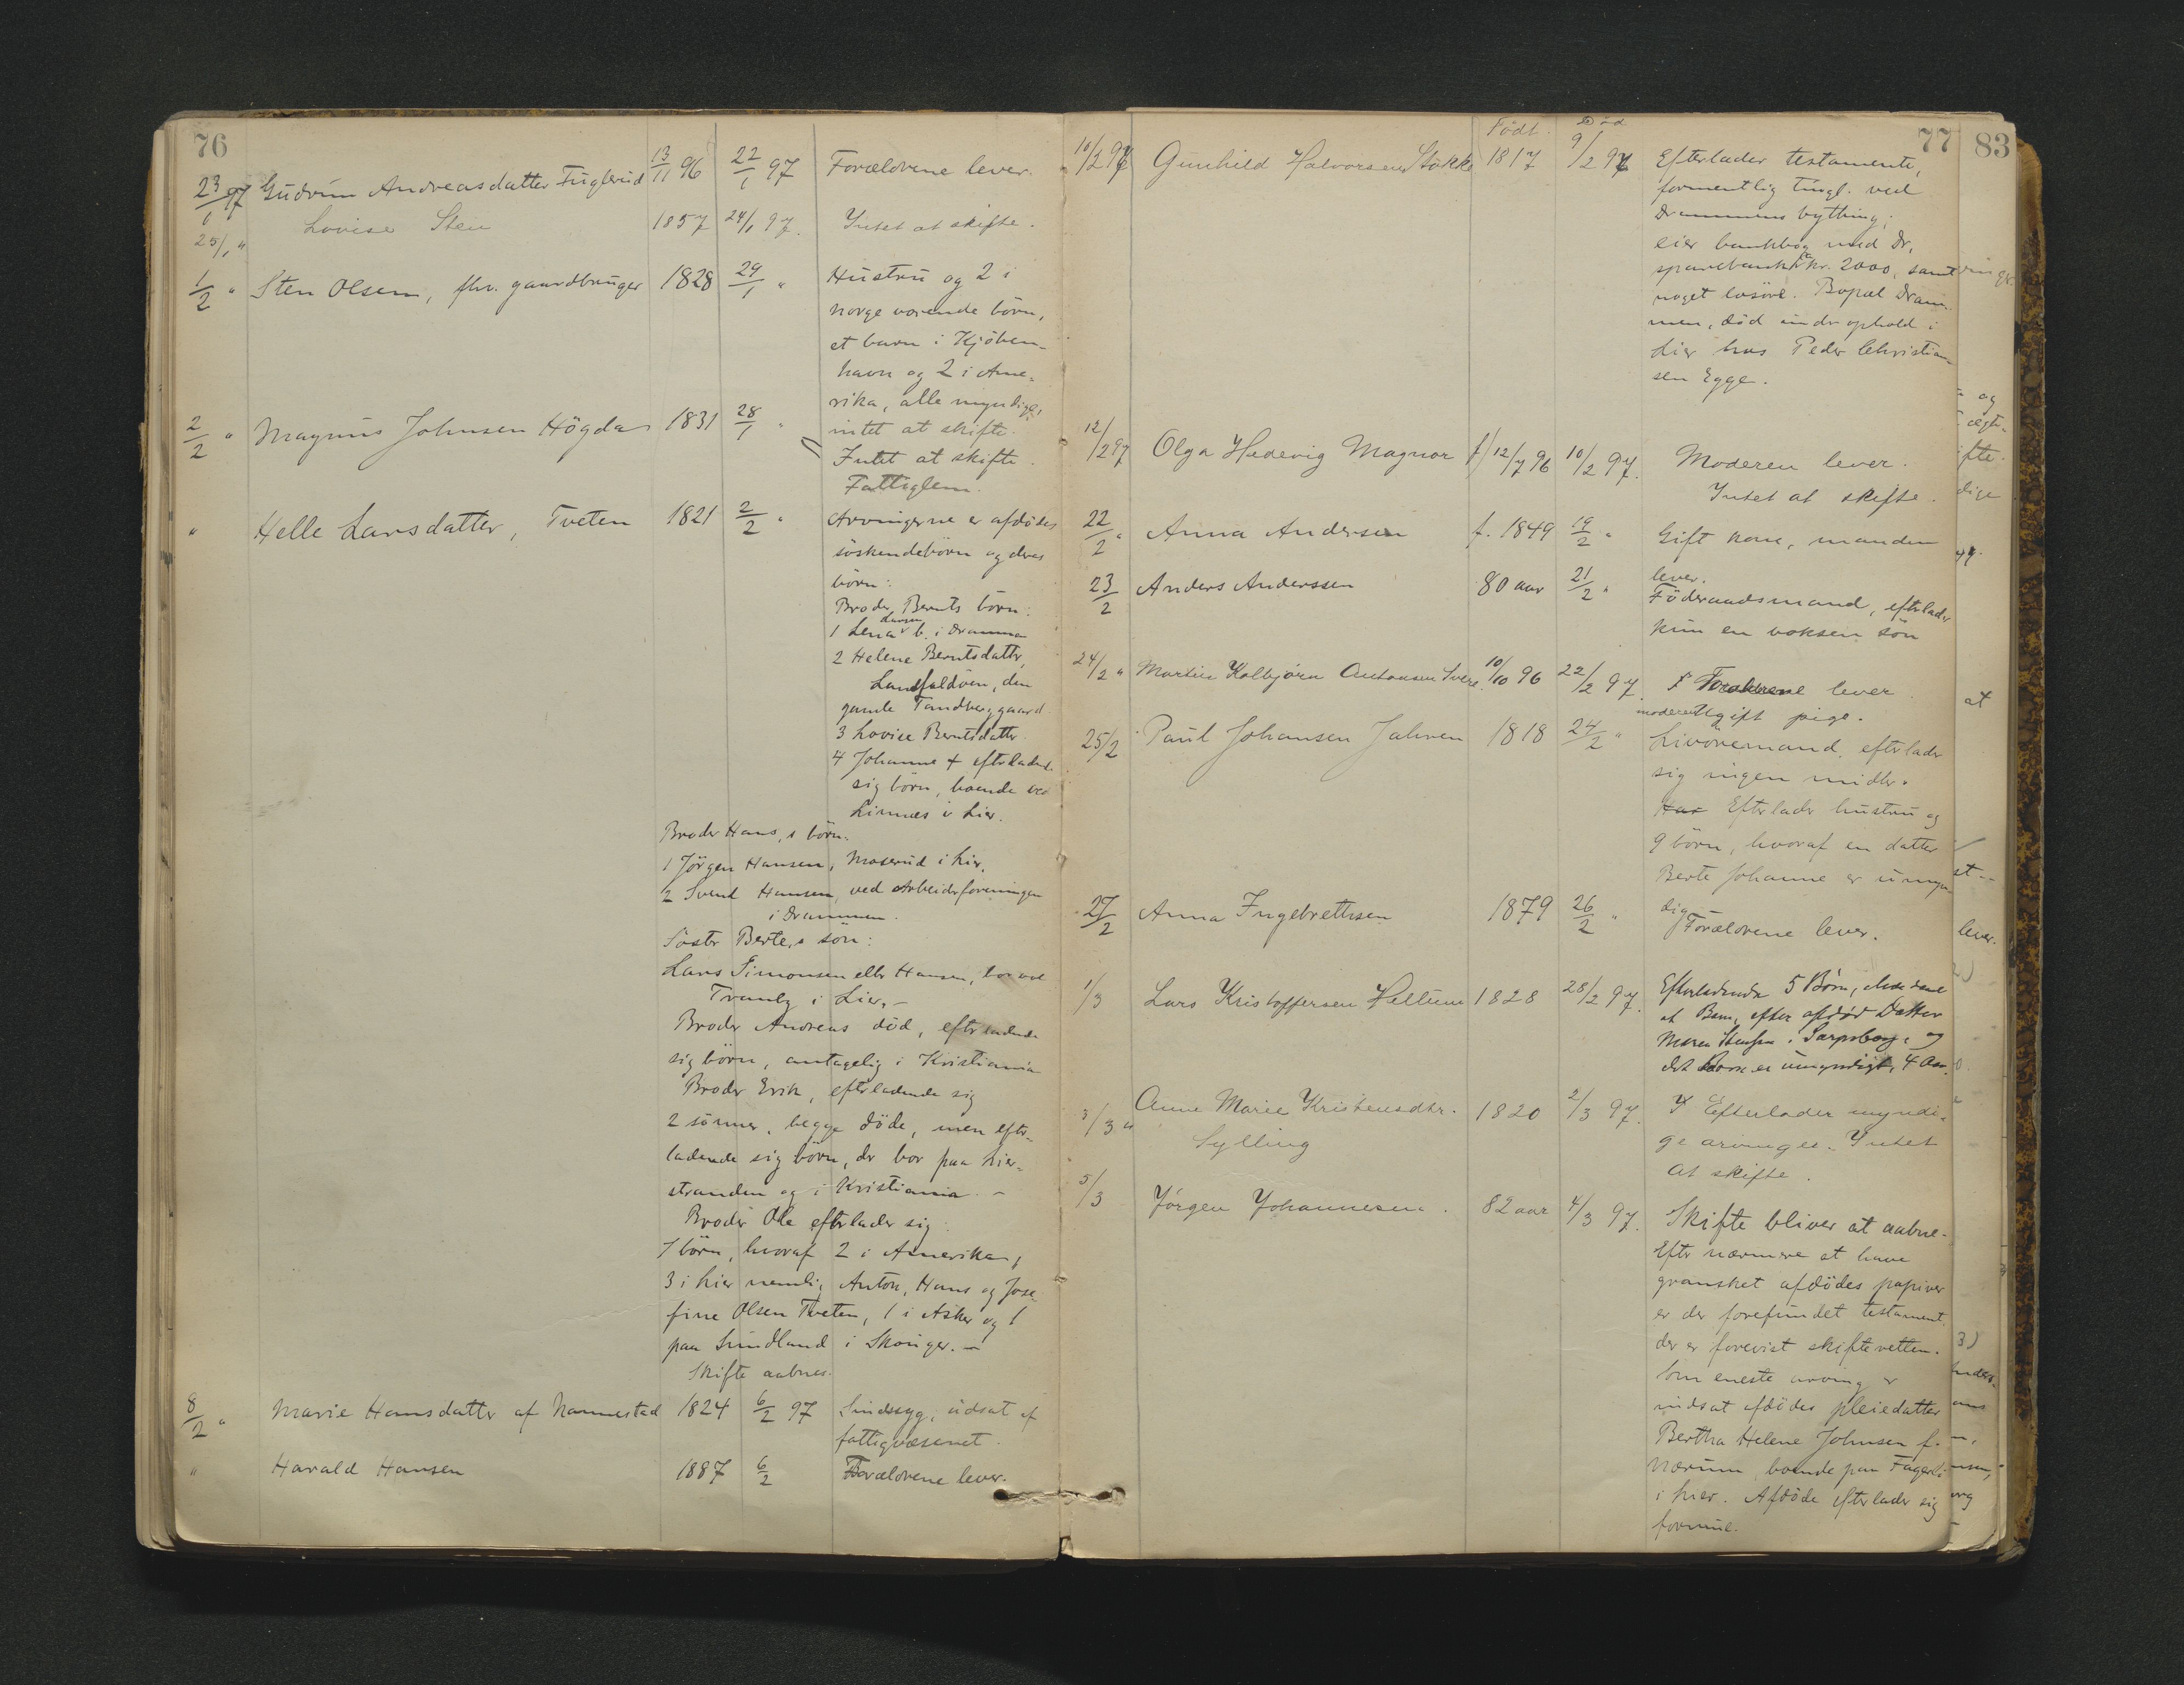 76
23/1 97 Gudrun Andreasdatter Fuglerud 13/11 96 22/1 97 Forældrene lever.
25/1 " Lovise Sten 1857 24/1 97. Intet at skifte.
1/2 " Sten Olsen, fhv. gaardbruger 1828 29/1 " Hustru og 2 i
norge værende börn,
et barn i Kjöben-
havn og 2 i Ame-
rika, alle myndige,
intet at skifte.
2/2 " Magnus Johnsen Högda 1831 28/1 "
Intet at skifte.
Fattiglem.
" Helle Larsdatter, Tveten 1821 2/2 " Arvingerne er afdödes
söskendebörn og deres
börn:
Broder Bernts börn:
1 Lena Larsen b. i Drammen
2 Helene Berntsdatter,
Landfaldöen, den
gamle Tandberggaard
3 Lovise Berntsdatter
4 Johanne + efterladende
sig börn, boende ved
Linnæs i Lier.
Broder Hans, s börn:
1 Jörgen Hansen, Moserud i Lier,
2 Svend Hansen, ved Arbeiderforeningen
i Drammen.
Söster Berte, s sön:
Lars Simonsen eller Hansen, bor ved
Tranby i Lier. –
Broder Andreas död, efterladende
sig börn, antagelig i Kristiania
Broder Erik, efterladende sig
2 sönner, begge döde, men efter-
ladende sig börn, der bor paa Lier-
stranden og i Kristiania. –
Broder Ole efterlader sig
7 börn, hvoraf 2 i Amerika,
3 i Lier nemlig Anton, Hans og Jose-
fine Olsen Tveten, 1 i Asker og 1
paa Lindland i Skouger. –
Skifte aabnes.
8/2 " Marie Hansdatter af Nannestad 1824 6/2 97 Sindssyg, udsat af
fattigvæsenet.
" Harald Hansen 1887 6/2 Forældrene lever.
77
83
Födt. Död
10/2 97 Gunhild Halvorsen Stokke 1817 9/2 97 Efterlader testamente,
formentlig tingl. ved
Drammens bything;
eier bankbog med Dr,
sparebank ca kr. 2000, samt
noget lösöre. Bopæl Dram-
men, död under ophold i
Lier hos Peder Christian-
sen Egge.
12/2 97 Olga Hedevig Magnor f 12/7 96 10/2 97. Moderen lever.
Intet at skifte.
22/2 " Anna Andersen f. 1849 19/2 " Gift kone, manden
lever.
23/2 Anders Anderssen 80 aar 21/2 " Föderaadsmand, efterlader
kun en voksen sön
24/2 " Martin Kolbjörn Antonsen 10/10 96 22/2 97. Forældrene lever
moderen Ugift pige.
25/2 Paul Johansen Jahren 1818 24/2 " Livöremand, efterlader
sig ingen midler.
Har Efterlader hustru og
9 börn, hvoraf en datter
Berte Johanne er umyn-
dig –
27/2 Anna Ingebrethsen 1879 26/2 " Forældrene lever.
1/3 Lars Kristoffersen Heltum 1828 28/2 97. Efterladende 5 Børn,
et Barn, efter afdød Datter
Maren i Sarpsborg, og
det Barn er umyndigt, 4 Aar.
3/3 " Anne Marie Kristensdtr. 1820 2/3 97. Efterlader myndi-
Sylling
ge arvinger. Intet
at skifte.
5/3 Jörgen Johannesen. 82 aar 4/3 97. Skifte bliver at aabne.
Efter nærmere at have
gransket afdödes papirer
er der forefundet testament.
der er forevist skifteretten.
Som eneste arving er
indsat afdödes pleiedatter
Bertha Helene Johnsen f.
Nærum, boende paa Fagerli
i Lier. Afdöde efterlader sig
formue.
og
at
lever.
3)